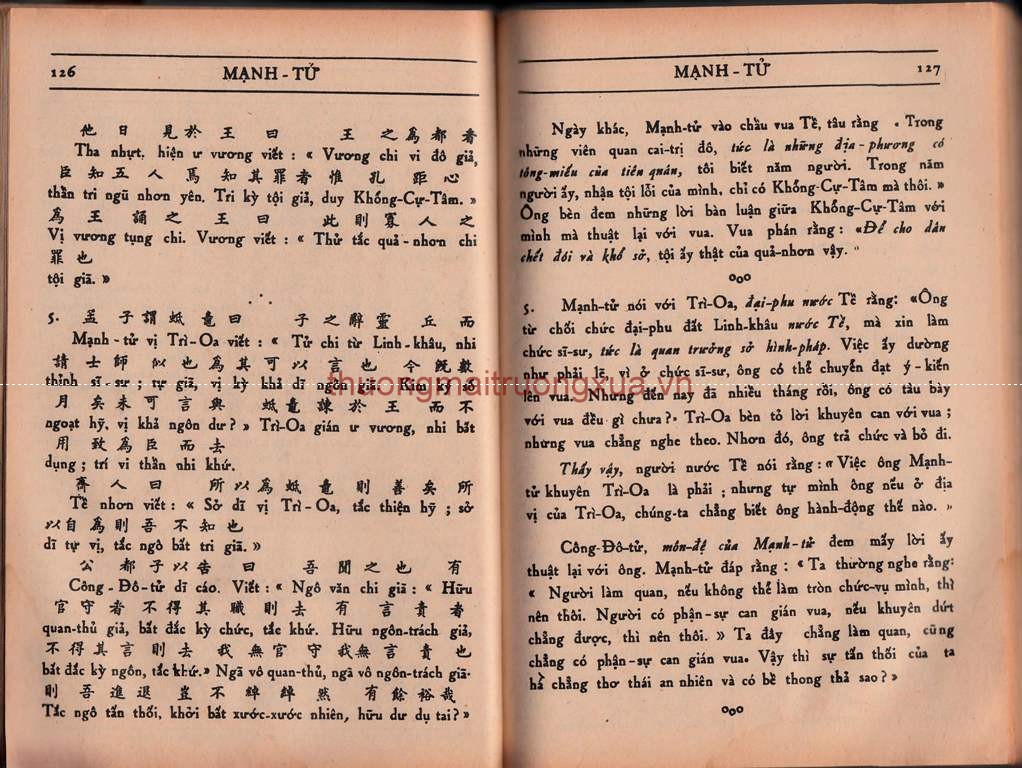 126
MẠNH-TỬ
他日見於王曰王之為都者
Tha nhựt, hiện ư vương viết : « Vương chi vi đô giả,
臣知五人焉知其罪者惟孔距心
thần tri ngũ nhơn yên. Tri kỳ tội giả, duy Khổng-Cự-Tâm. »
為王誦之王曰此則寡人之
Vị vương tụng chi. Vương viết : « Thử tắc quả-nhơn chi
罪也
tội giã. »
5. 孟子謂蚳鼃曰子之辭靈丘而
Mạnh-tử vị Trì-Oa viết : « Tử chi từ Linh-khâu, nhi
請士師似也為其可以言也今既數
thỉnh sĩ-sư ; tự giã, vị kỳ khả dĩ ngôn giã. Kim ký sổ
月矣未可言與蚳鼃諫於王而不
ngoạt hỹ, vị khả ngôn dư ? » Trì-Oa gián ư vương, nhi bất
用致為臣而去
dụng ; trí vi thần nhi khứ.
齊人曰所以為蚳鼃則善矣所
Tề nhơn viết : « Sở dĩ vị Trì-Oa, tắc thiện hỹ ; sở
以自為則吾不知也
dĩ tự vị, tắc ngô bất tri giã. »
公都子以告曰吾聞之也有
Công-Đô-tử dĩ cáo. Viết : « Ngô văn chi giã : « Hữu
官守者不得其職則去有言責者
quan-thủ giả, bất đắc kỳ chức, tắc khứ. Hữu ngôn-trách giả,
不得其言則去我無官守我無言責也
bất đắc kỳ ngôn, tắc khứ. » Ngã vô quan-thủ, ngã vô ngôn-trách giã.
則吾進退豈不綽綽然有餘裕哉
Tắc ngô tấn thối, khởi bất xước-xước nhiên, hữu dư dụ tai ? »
MẠNH-TỬ
127
Ngày khác, Mạnh-tử vào chầu vua Tề, tâu rằng « Trong
những viên quan cai-trị đô, tức là những địa-phương có
tông-miếu của tiên quân, tôi biết năm người. Trong năm
người ấy, nhận tội lỗi của mình, chỉ có Khổng-Cự-Tâm mà thôi. »
Ông bèn đem những lời bàn luận giữa Khổng-Cự-Tâm với
mình mà thuật lại với vua. Vua phán rằng : «Để cho dân
chết đói và khổ sở, tội ấy thật của quả-nhơn vậy. »
5. Mạnh-tử nói với Trì-Oa, đại-phu nước Tề rằng: «Ông
từ chối chức đại-phu đất Linh-khâu nước Tề, mà xin làm
chức sĩ-sư, tức là quan trưởng sở hình-pháp. Việc ấy dường
như phải lẽ, vì ở chức sĩ-sư, ông có thể chuyển đạt ý-kiến
lên vua. Nhưng đến nay đã nhiều tháng rồi, ông có tàu bày
với vua đều gì chưa ?» Trì-Oa bèn tỏ lời khuyên can với vua ;
nhưng vua chẳng nghe theo. Nhơn đó, ông trả chức và bỏ đi.
Thấy vậy, người nước Tề nói rằng : « Việc ông Mạnh-
tử khuyên Trì-Oa là phải ; nhưng tự mình ông nếu ở địa
vị của Trì-Oa, chúng-ta chẳng biết ông hành-động thế nào. »
Công-Đô-tử, môn-đệ của Mạnh-tử đem mấy lời ấy
thuật lại với ông. Mạnh-tử đáp rằng : « Ta thường nghe rằng:
« Người làm quan, nếu không thể làm tròn chức-vụ mình, thì
nên thôi. Người có phận-sự can gián vua, nếu khuyên dứt
chẳng được, thì nên thôi. » Ta đây chẳng làm quan, cũng
chẳng có phận-sự can gián vua. Vậy thì sự tấn thối của ta
há chẳng thơ thái an nhiên và có bề thong thả sao ? »
thuongmaitruongxua.vn